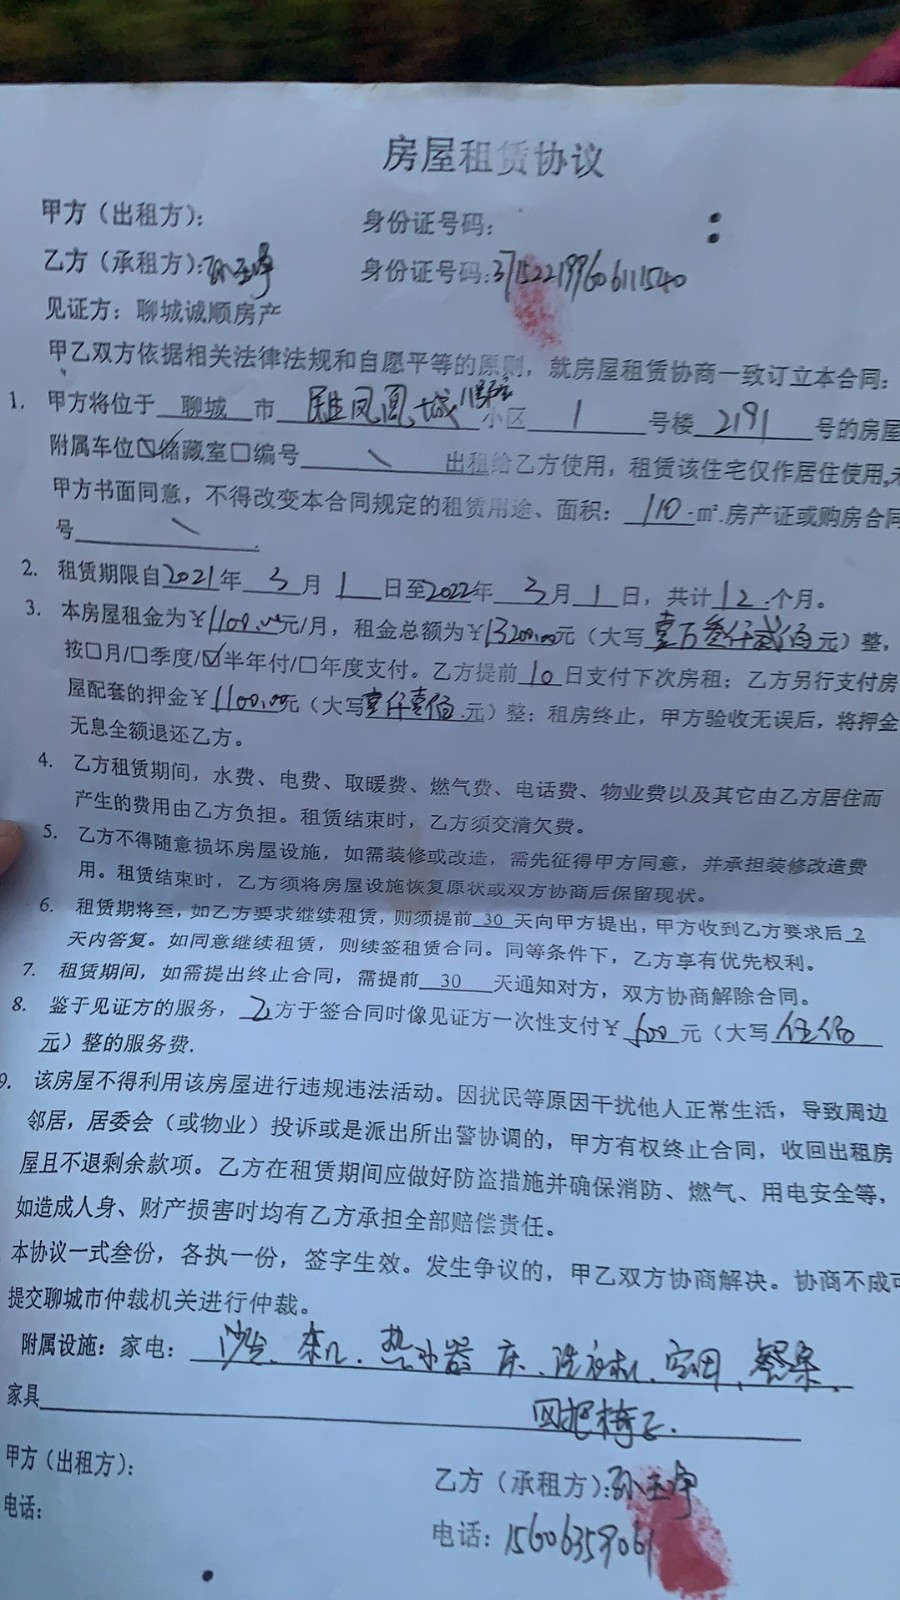 房屋租赁协议
甲方（出租方）： 身份证号码：
乙方（承租方）：孙 身份证号码：371522199606111540
见证方：聊城诚顺房产
甲乙双方依据相关法律法规和自愿平等的原则，就房屋租赁协商一致订立本合同：
1. 甲方将位于 聊城 市 凤凰城 小区 1 号楼 2191 号的房屋
附属车位☑储藏室□编号 \ 出租给乙方使用，租赁该住宅仅作居住使用,未
甲方书面同意，不得改变本合同规定的租赁用途、面积： 110 ·m².房产证或购房合同
号 \ .
2. 租赁期限自2021年 3 月 1 日至2022年 3 月 1 日，共计 12 个月。
3. 本房屋租金为￥1100.00元/月，租金总额为￥13200.00元（大写 壹万叁仟贰佰元）整，
按□月/□季度/☑半年付/□年度支付。乙方提前 10 日支付下次房租；乙方另行支付房
屋配套的押金￥1100.00元（大写壹仟壹佰.元）整；租房终止，甲方验收无误后，将押金
无息全额退还乙方。
4. 乙方租赁期间，水费、电费、取暖费、燃气费、电话费、物业费以及其它由乙方居住而
产生的费用由乙方负担。租赁结束时，乙方须交清欠费。
5. 乙方不得随意损坏房屋设施，如需装修或改造，需先征得甲方同意，并承担装修改造费
用。租赁结束时，乙方须将房屋设施恢复原状或双方协商后保留现状。
6. 租赁期将至，如乙方要求继续租赁，则须提前 30 天向甲方提出，甲方收到乙方要求后 2
天内答复。如同意继续租赁，则续签租赁合同。同等条件下，乙方享有优先权利。
7. 租赁期间，如需提出终止合同，需提前 30 天通知对方，双方协商解除合同。
8. 鉴于见证方的服务， 乙 方于签合同时像见证方一次性支付￥ 600 元（大写
元）整的服务费.
9. 该房屋不得利用该房屋进行违规违法活动。因扰民等原因干扰他人正常生活，导致周边
邻居，居委会（或物业）投诉或是派出所出警协调的，甲方有权终止合同，收回出租房
屋且不退剩余款项。乙方在租赁期间应做好防盗措施并确保消防、燃气、用电安全等，
如造成人身、财产损害时均有乙方承担全部赔偿责任。
本协议一式叁份，各执一份，签字生效。发生争议的，甲乙双方协商解决。协商不成可
提交聊城市仲裁机关进行仲裁。
附属设施：家电： 沙发、茶几、热水器 床、洗衣机、空调、餐桌、
家具 四把椅子.
甲方（出租方）： 乙方（承租方）：孙
电话： 电话：15606359061